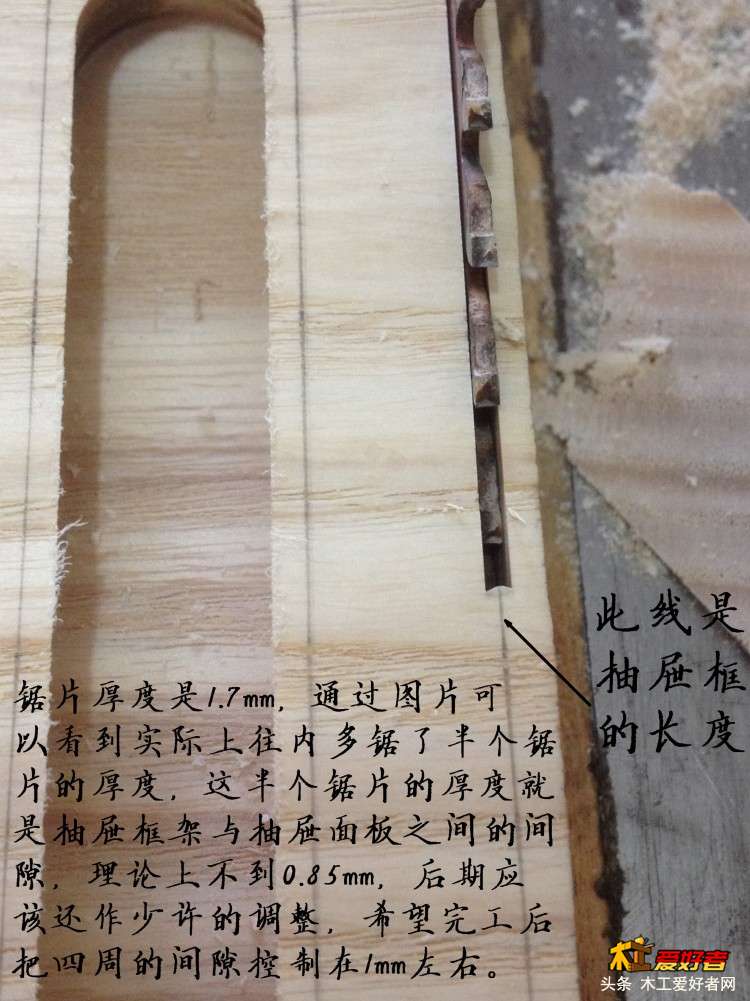 此线是
抽屉框
的长度
锯片厚度是1.7mm，通过图片可
以看到实际上往内多锯了半个锯
片的厚度，这半个锯片的厚度就
是抽屉框架与抽屉面板之间的间
隙，理论上不到0.85mm，后期应
该还作少许的调整，希望完工后
把四周的间隙控制在1mm左右。
木工爱好者
头条 木工爱好者网